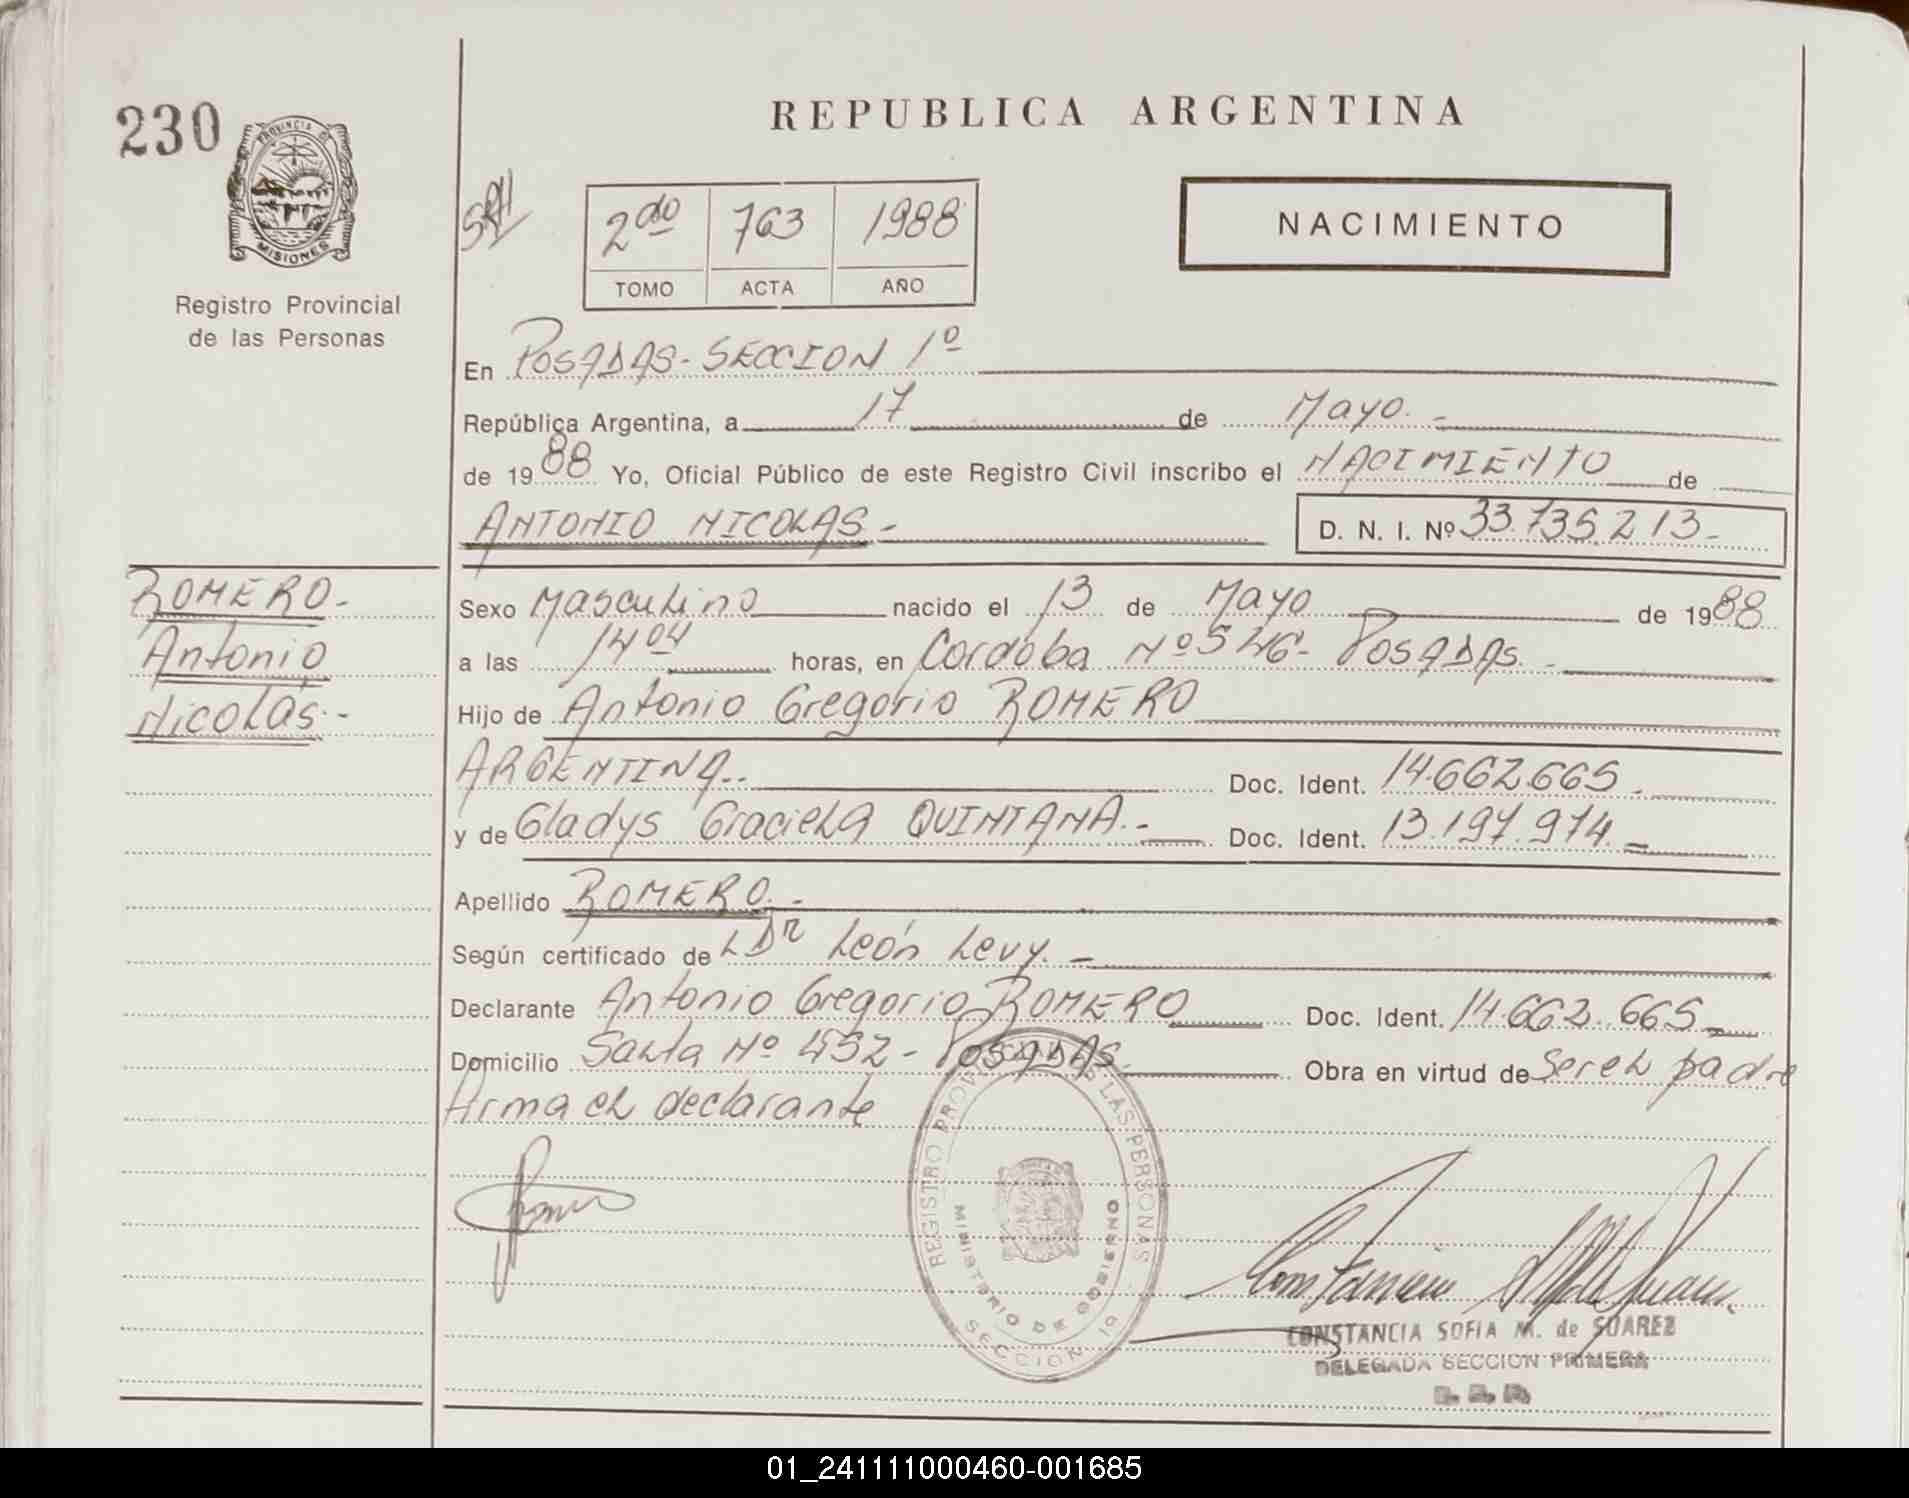 230
PROVINCIA DE
MISIONES
Registro Provincial
de las Personas
REPUBLICA ARGENTINA
2do 763 1988
TOMO ACTA AÑO
NACIMIENTO
En POSADAS - SECCION 1º
República Argentina, a 17 de Mayo. -
de 1988 Yo, Oficial Público de este Registro Civil inscribo el NACIMIENTO de
ANTONIO NICOLAS - D. N. I. Nº 33.735.213 -
ROMERO. -
Antonio
Nicolás. -
Sexo Masculino nacido el 13 de Mayo de 1988
a las 14 04 horas, en Cordoba Nº 546 - POSADAS. -
Hijo de Antonio Gregorio ROMERO
ARGENTINA.. Doc. Ident. 14.662.665. -
y de Gladys Graciela QUINTANA. - Doc. Ident. 13.197.974. -
Apellido ROMERO. -
Según certificado de Dr León Levy. -
Declarante Antonio Gregorio ROMERO Doc. Ident. 14.662.665 -
Domicilio Salta Nº 452 - POSADAS. Obra en virtud de ser el padre
firma el declarante
REGISTRO PROVINCIAL DE LAS PERSONAS
MINISTERIO DE GOBIERNO
SECCION 1a
CONSTANCIA SOFIA M. de SUAREZ
DELEGADA SECCION PRIMERA
01_241111000460-001685